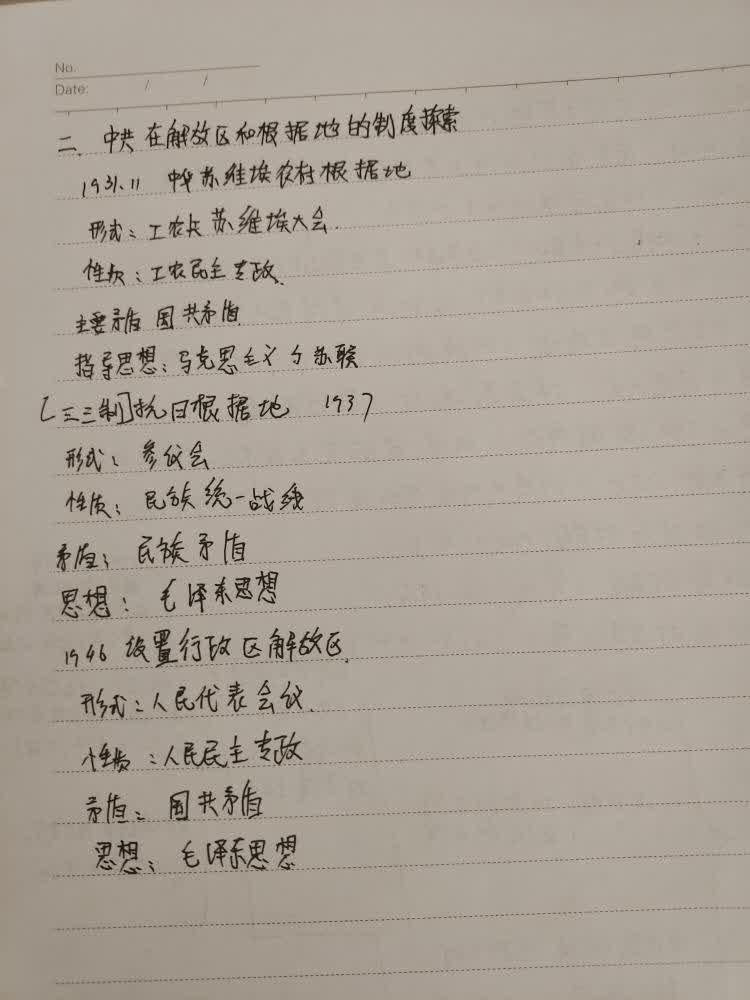 No.
Date: / /
二、中共在解放区和根据地的制度探索
1931.11 中华苏维埃农村根据地
形式：工农兵苏维埃大会.
性质：工农民主专政.
主要矛盾 国共矛盾
指导思想：马克思主义与苏联
[三三制]抗日根据地 1937
形式：参议会
性质：民族统一战线
矛盾：民族矛盾
思想：毛泽东思想
1946 设置行政区解放区.
形式：人民代表会议.
性质：人民民主专政
矛盾：国共矛盾
思想：毛泽东思想